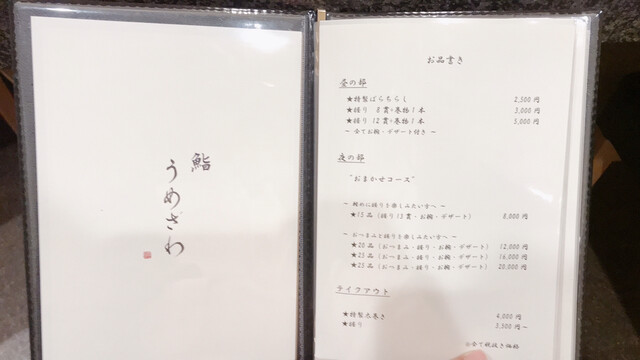 鮨
うめざわ
お品書き
昼の部
★特製ばらちらし 2,500円
★握り 8貫・巻物1本 3,000円
★握り 12貫・巻物1本 5,000円
〜 全てお椀・デザート付き 〜
夜の部
"おまかせコース"
〜 軽めに握りを楽しみたい方へ 〜
★15品（握り13貫・お椀・デザート） 8,000円
〜 おつまみと握りを楽しみたい方へ 〜
★20品（おつまみ・握り・お椀・デザート） 12,000円
★23品（おつまみ・握り・お椀・デザート） 16,000円
★25品（おつまみ・握り・お椀・デザート） 20,000円
テイクアウト
★特製太巻き 4,000円
★握り 2,500円〜
※全て税抜き価格